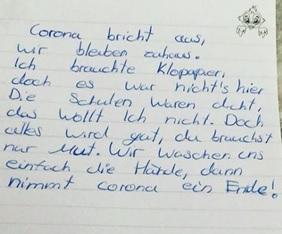 Corona bricht aus,
wir bleiben zuhaus.
Ich brauchte Klopapier,
doch es war nicht's hier
Die Schulen waren dicht,
das wollt Ich nicht. Doch
alles wird gut, du brauchst
nur Mut. Wir waschen uns
einfach die Hände, dann
nimmt corona ein Ende!